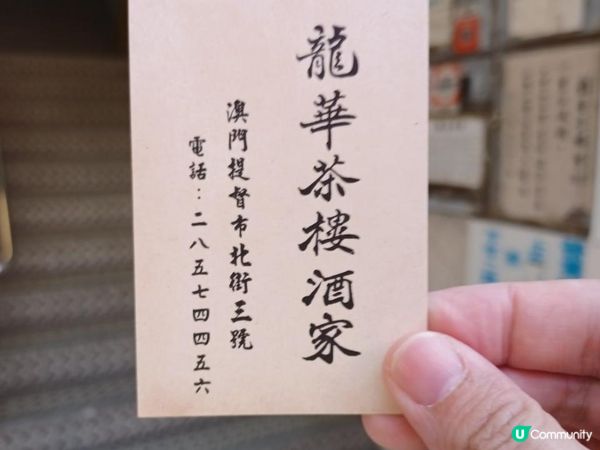 龍華茶樓酒家
澳門提督市北街三號
電話：二八五七四四五六
U Community